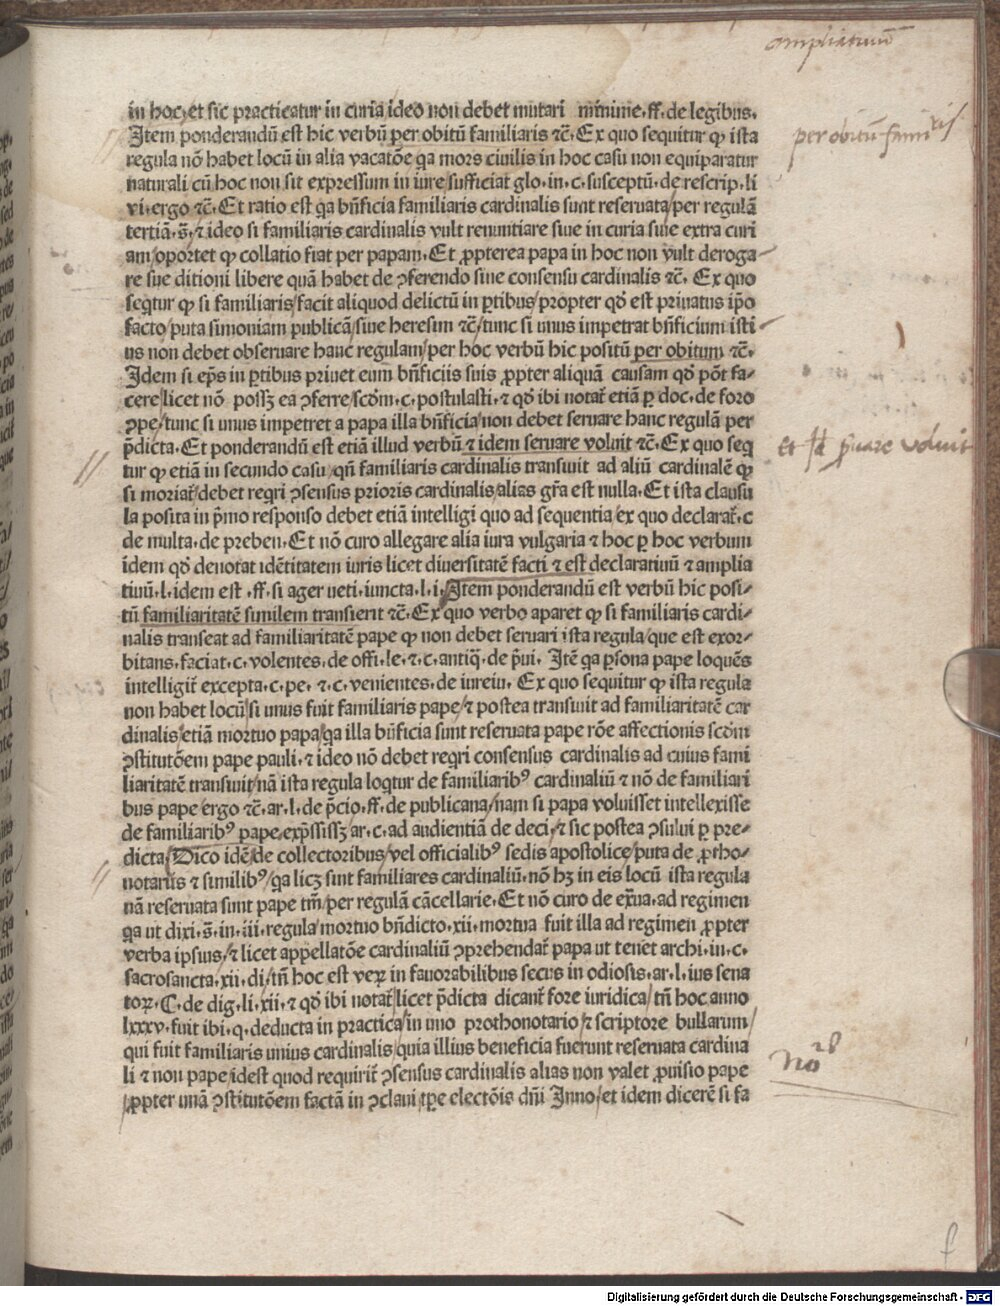 ampliatiuū
in hoc, et sic practicatur in curia ideo non debet mutari minime .ff. de legibus.
Item ponderandū est hic verbū per obitū familiaris ⁊c̄. Ex quo sequitur ꝙ ista
per obitū famiris
regula nō habet locū in alia vacatōe qa mors ciuilis in hoc casu non equiparatur
naturali cū hoc non sit expressum in iure/sufficiat glo.in.c.susceptū.de rescrip.li
vi.ergo ⁊c̄. Et ratio est qa bn̄ficia familiaris cardinalis sunt reseruata/per regulā
tertiā.s̄./⁊ ideo si familiaris cardinalis vult renuntiare siue in curia siue extra curi
am/oportet ꝙ collatio fiat per papam. Et ꝓpterea papa in hoc non vult deroga⸗
re sue ditioni libere quā habet de ꝯferendo sine consensu cardinalis ⁊c̄. Ex quo
seqtur ꝙ si familiaris/facit aliquod delictū in ꝑtibus/propter qd̄ est priuatus ip̄o
facto/puta simoniam publicā/siue heresim ⁊c̄/tunc si unus impetrat bn̄ficium isti⸗
us non debet obseruare hanc regulam/per hoc verbū hic positū per obitum ⁊c̄.
Idem si ep̄s in ꝑtibus priuet eum bn̄ficiis suis ꝓpter aliquā causam qd̄ pōt fa⸗
cere/licet nō possꝫ ea ꝯferre/scd̄m.c.postulasti.⁊ qd̄ ibi notat̄ etiā ꝑ doc.de foro
ꝯpe/tunc si unus impetret a papa illa bn̄ficia/non debet seruare hanc regulā per
p̄dicta. Et ponderandū est etiā illud verbū ⁊ idem seruare voluit ⁊c̄. Ex quo seq
tur ꝙ etiā in secundo casu/qn̄ familiaris cardinalis transiuit ad aliū cardinalē ꝙ
si moriat̄/debet reqri ꝯsensus prioris cardinalis/alias gr̄a est nulla. Et ista clausu
la posita in p̄mo responso debet etiā intelligi quo ad sequentia/ex quo declarat̄.c
de multa.de preben. Et nō curo allegare alia iura vulgaria ⁊ hoc ꝑ hoc verbum
idem qd̄ denotat idētitatem iuris licet diuersitatē facti ⁊ est declaratiuū ⁊ amplia
tiuū.l.idem est .ff.si ager ueti.iuncta.l.i. Item ponderandū est verbū hic posi⸗
tū familiaritatē similem transierit ⁊c̄. Ex quo verbo aparet ꝙ si familiaris cardi⸗
nalis transeat ad familiaritatē pape ꝙ non debet seruari ista regula/que est exor⸗
bitans.faciat.c.volentes.de offi.le.⁊.c.antiq̄.de p̄ui. Itē qa ꝑsona pape loquēs
intelligit̄ excepta.c.pe.⁊.c.venientes.de iureiu. Ex quo sequitur ꝙ ista regula
non habet locū/si unus fuit familiaris pape/⁊ postea transiuit ad familiaritatē car
dinalis/etiā mortuo papa/qa illa bn̄ficia sunt reseruata pape rōe affectionis scd̄m
ꝯstitutōem pape pauli.⁊ ideo nō debet reqri consensus cardinalis ad cuius fami
liaritatē transiuit/nā ista regula loqtur de familiaribꝰ cardinaliū ⁊ nō de familiari
bus pape/ergo ⁊c̄.ar.l.de p̄cio.ff.de publicana/nam si papa voluisset intellexisse
de familiaribꝰ pape/exp̄ssissꝫ/ar.c.ad audientiā de deci.⁊ sic postea ꝯsului ꝑ pre⸗
dicta/Dico idē/de collectoribus/vel officialibꝰ sedis apostolice/puta de ꝓtho⸗
notariis ⁊ similibꝰ/qa licꝫ sint familiares cardinaliū.nō hꝫ in eis locū ista regula
nā reseruata sunt pape tm̄/per regulā cācellarie. Et nō curo de ex̄ua.ad regimen
qa ut dixi.s̄.in.iii.regula/mortuo bn̄dicto.xii.mortua fuit illa ad regimen ꝓpter
verba ipsius/⁊ licet appellatōe cardinaliū ꝯprehendat̄ papa ut tenet archi.in.c.
sacrosancta.xii.di/tn̄ hoc est verꝝ in fauorabilibus secus in odiosis.ar.l.ius sena
toꝝ.C.de dig.li.xii.⁊ qd̄ ibi notat̄/licet p̄dicta dicant̄ fore iuridica/tn̄ hoc anno
lxxxv.fuit ibi.q.deducta in practica/in uno prothonotario/⁊ scriptore bullarum/
qui fuit familiaris unius cardinalis/quia illius beneficia fuerunt reseruata cardina
li ⁊ non pape/idest quod requirit̄ ꝯsensus cardinalis alias non valet ꝓuisio pape
/ꝓpter unā ꝯstitutōem factā in ꝯclaui tp̄e electōis dn̄i Inno/et idem dicerē si fa
f
Digitalisierung gefördert durch die Deutsche Forschungsgemeinschaft - DFG